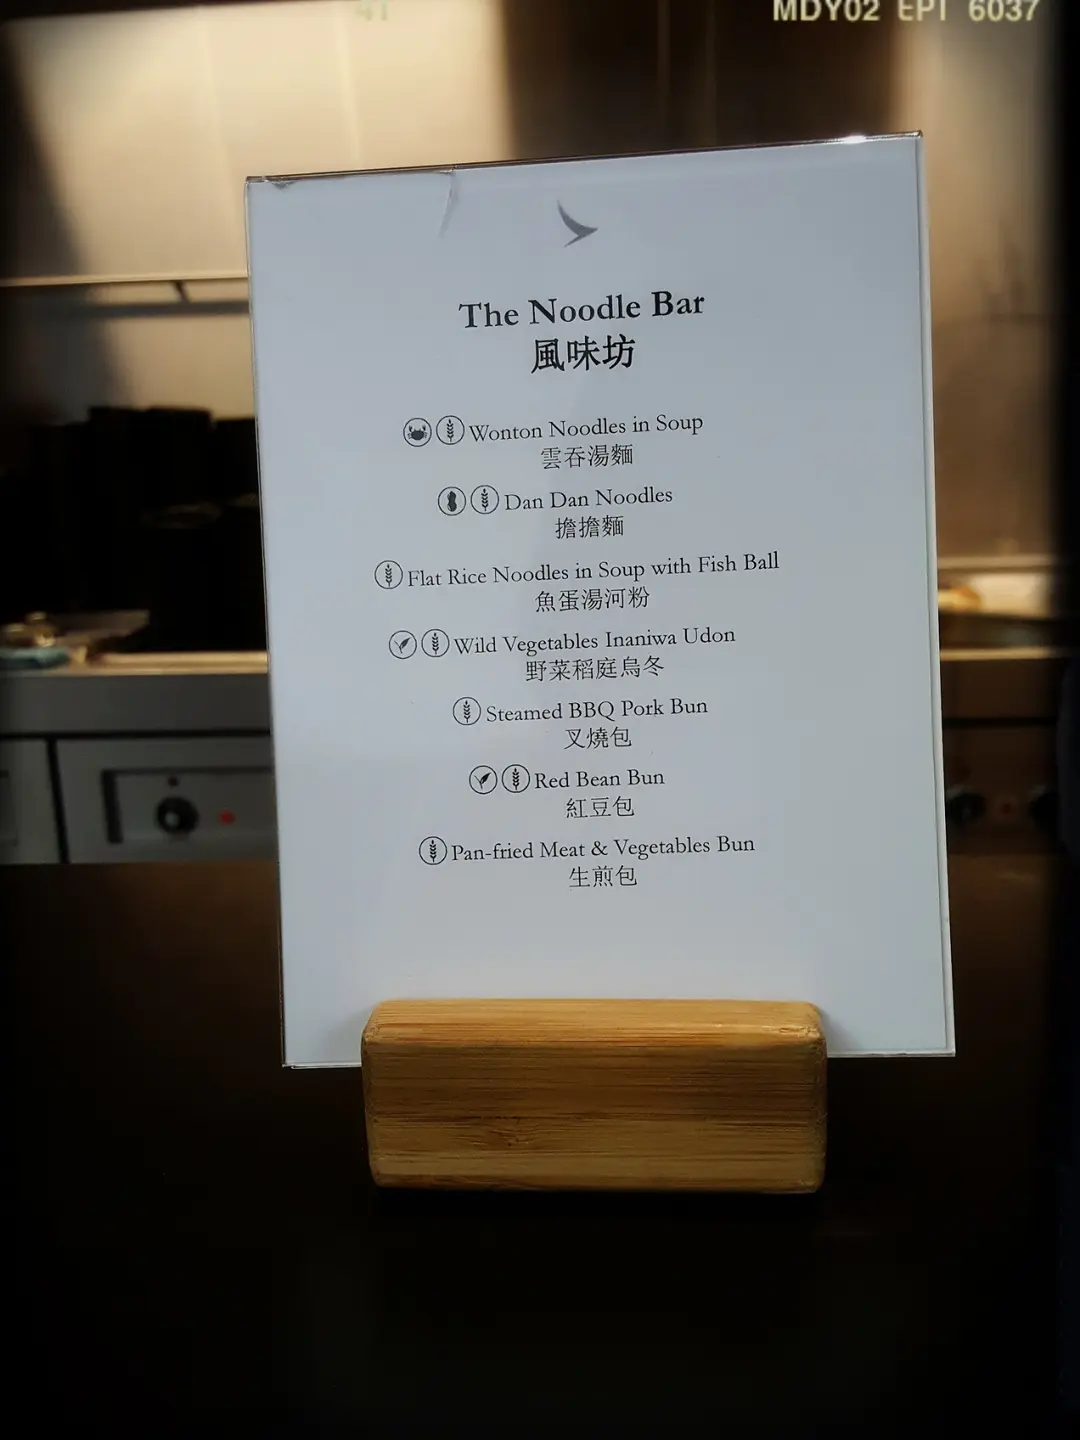 MDY02 EPI 6037
The Noodle Bar
風味坊
Wonton Noodles in Soup
雲吞湯麵
Dan Dan Noodles
擔擔麵
Flat Rice Noodles in Soup with Fish Ball
魚蛋湯河粉
Wild Vegetables Inaniwa Udon
野菜稻庭烏冬
Steamed BBQ Pork Bun
叉燒包
Red Bean Bun
紅豆包
Pan-fried Meat & Vegetables Bun
生煎包